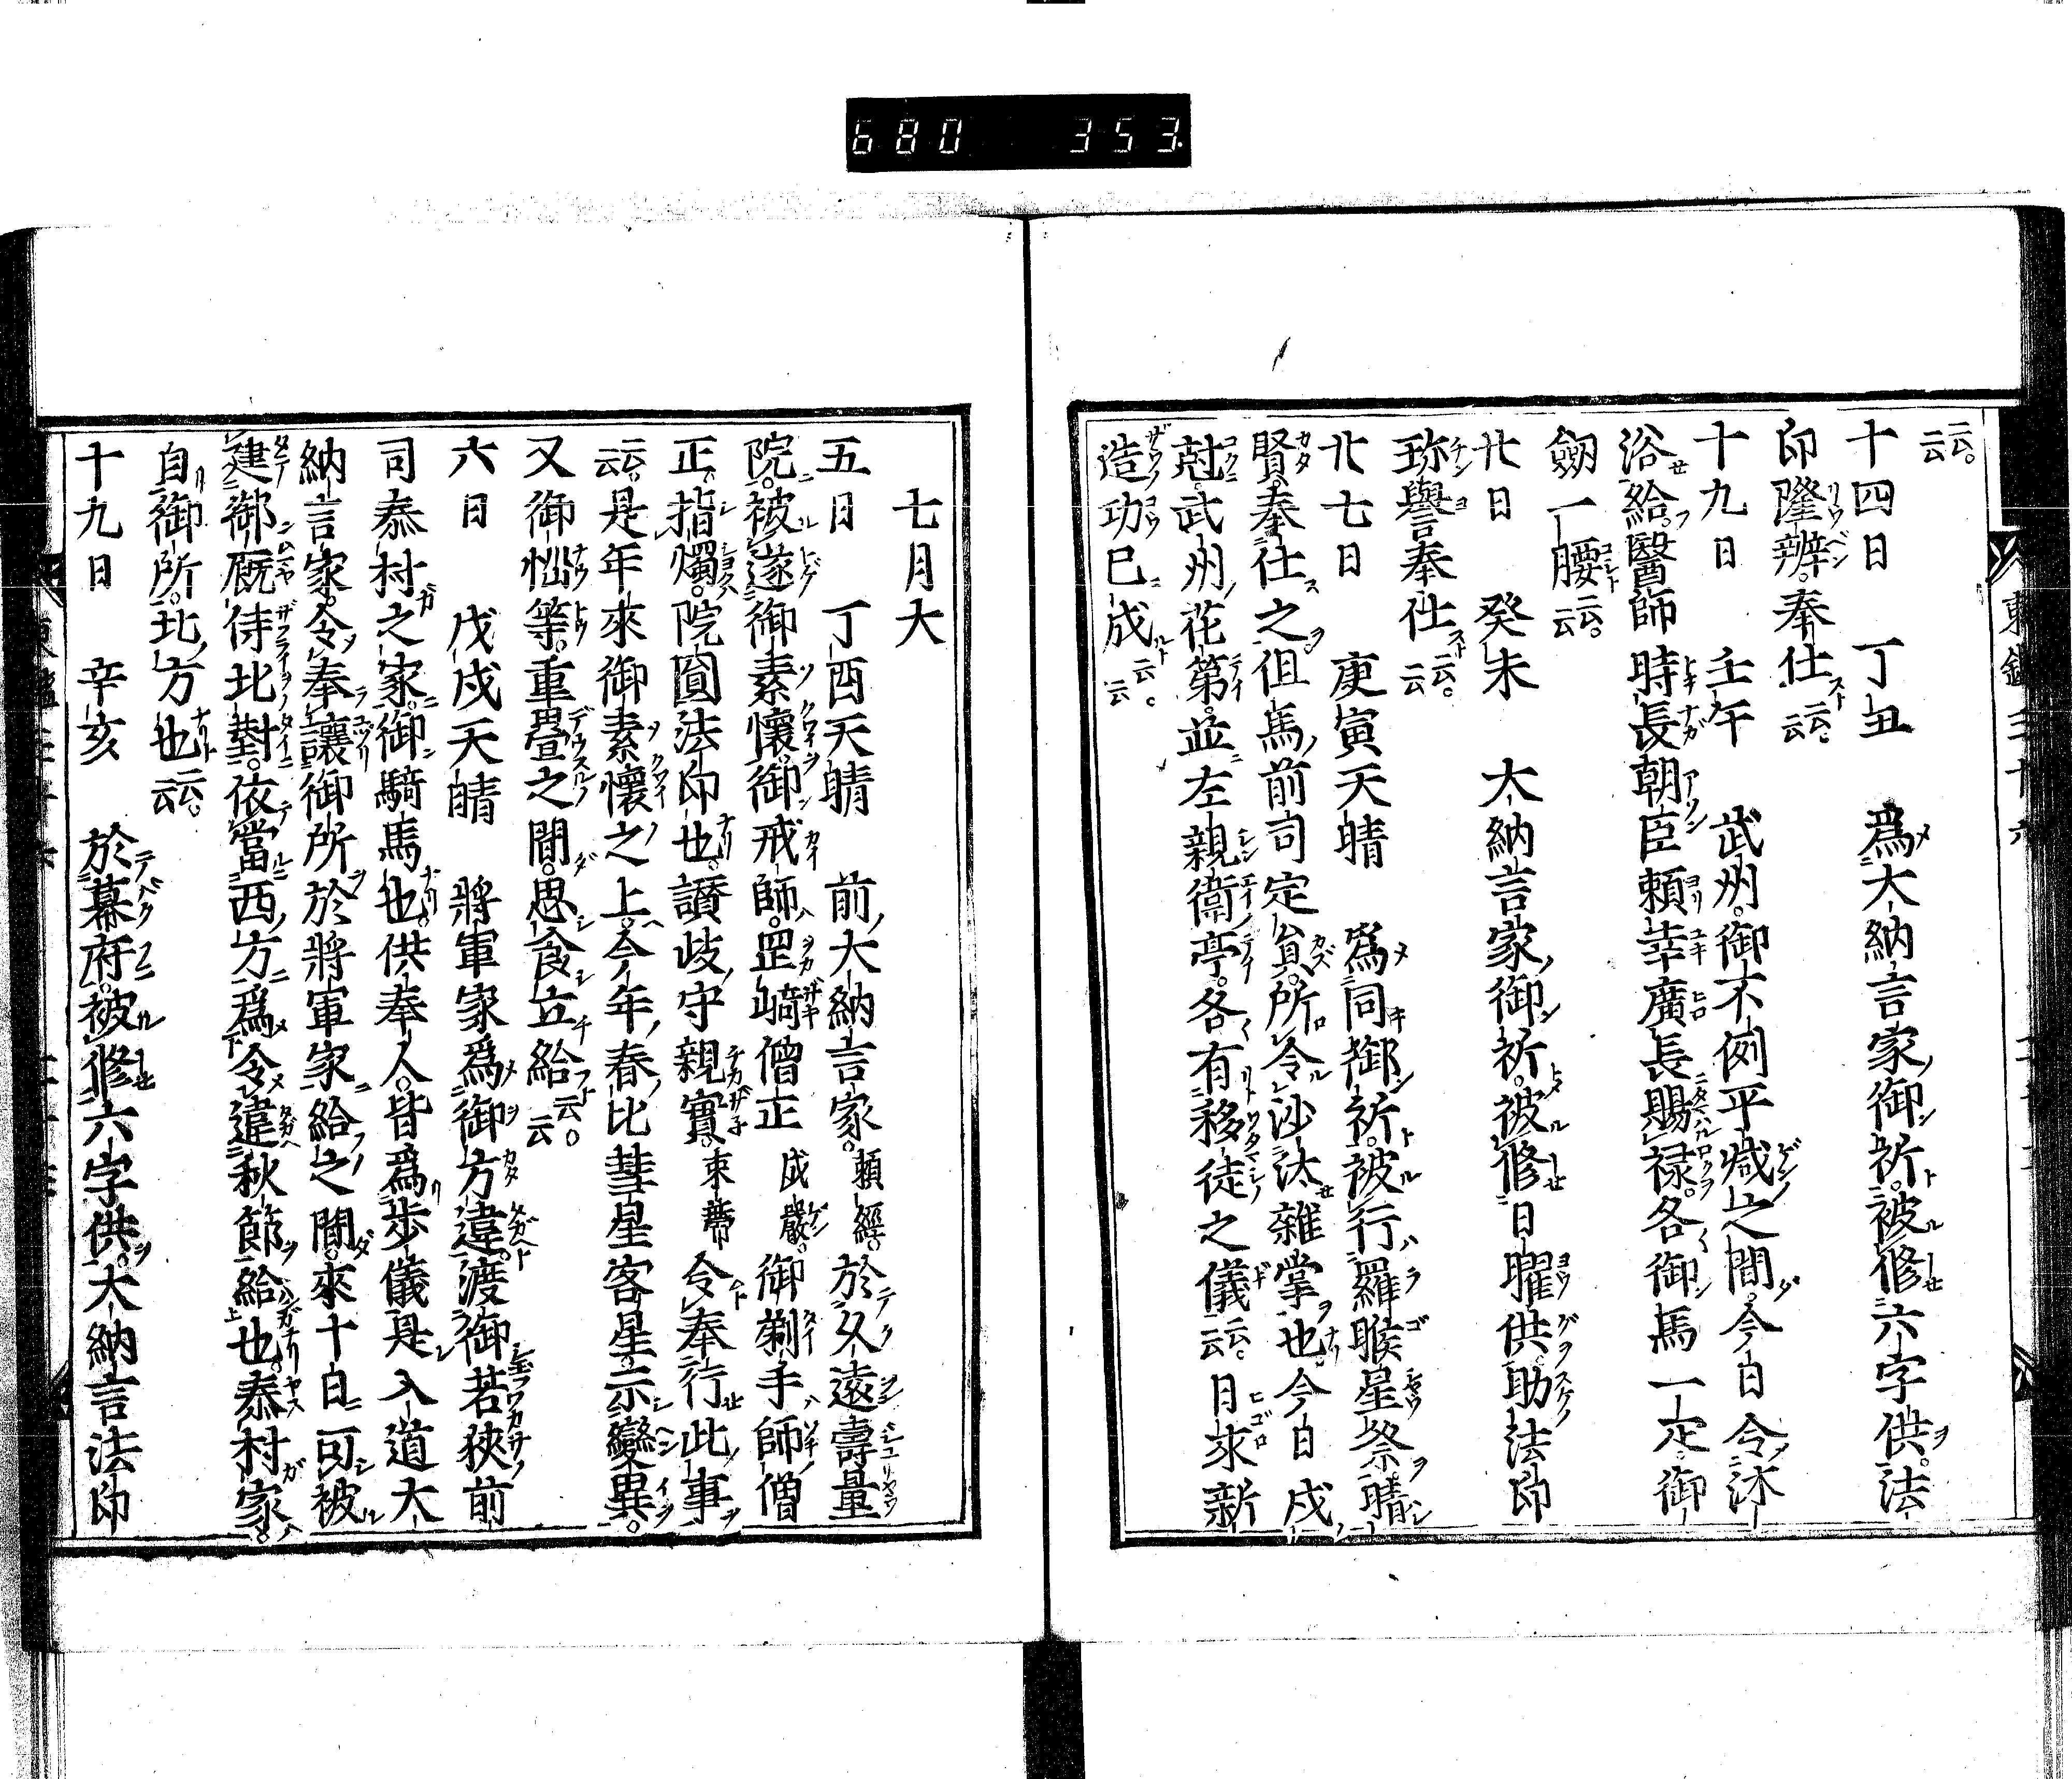 680 353
云云。
十四日 丁丑 爲大納言家御祈。被修六字供。法
印隆辨。奉仕云云。
十九日 壬午 武州。御不例平減之間。今日令沐
浴給。醫師時長朝臣頼幸廣長賜禄。各御馬一疋。御
劔一腰云云。
廿日 癸未 大納言家御祈。被修日曜供。助法印
珎譽奉仕云云。
廿七日 庚寅天晴 爲同御祈。被行羅睺星祭。晴
賢。奉仕之。但馬前司定員。所令沙汰雜掌也。今日戌
尅。武州花第。並左親衞亭。各有移徒之儀云云。日來新
造功已成云云。
七月大
五日 丁酉天晴 前大納言家。頼經。於久遠壽量
院。被遂御素懷。御戒師。岡崎僧正成嚴。御剃手師僧
正。指燭。院圓法印也。讃岐守親實。束帶令奉行此事
云云。是年來御素懷之上。今年春比彗星客星。示變異。
又御惱等。重疊之間。思食立給云云。
六日 戊戌天晴 將軍家爲御方違。渡御若狹前
司泰村之家。御騎馬也。供奉人。皆爲歩儀。是入道大
納言家。令奉讓御所於將軍家給之間。來十日可被
建御厩侍北對。依當西方。爲令違秋節給也。泰村家。
自御所。北方也云云。
十九日 辛亥 於幕府。被修六字供。大納言法印